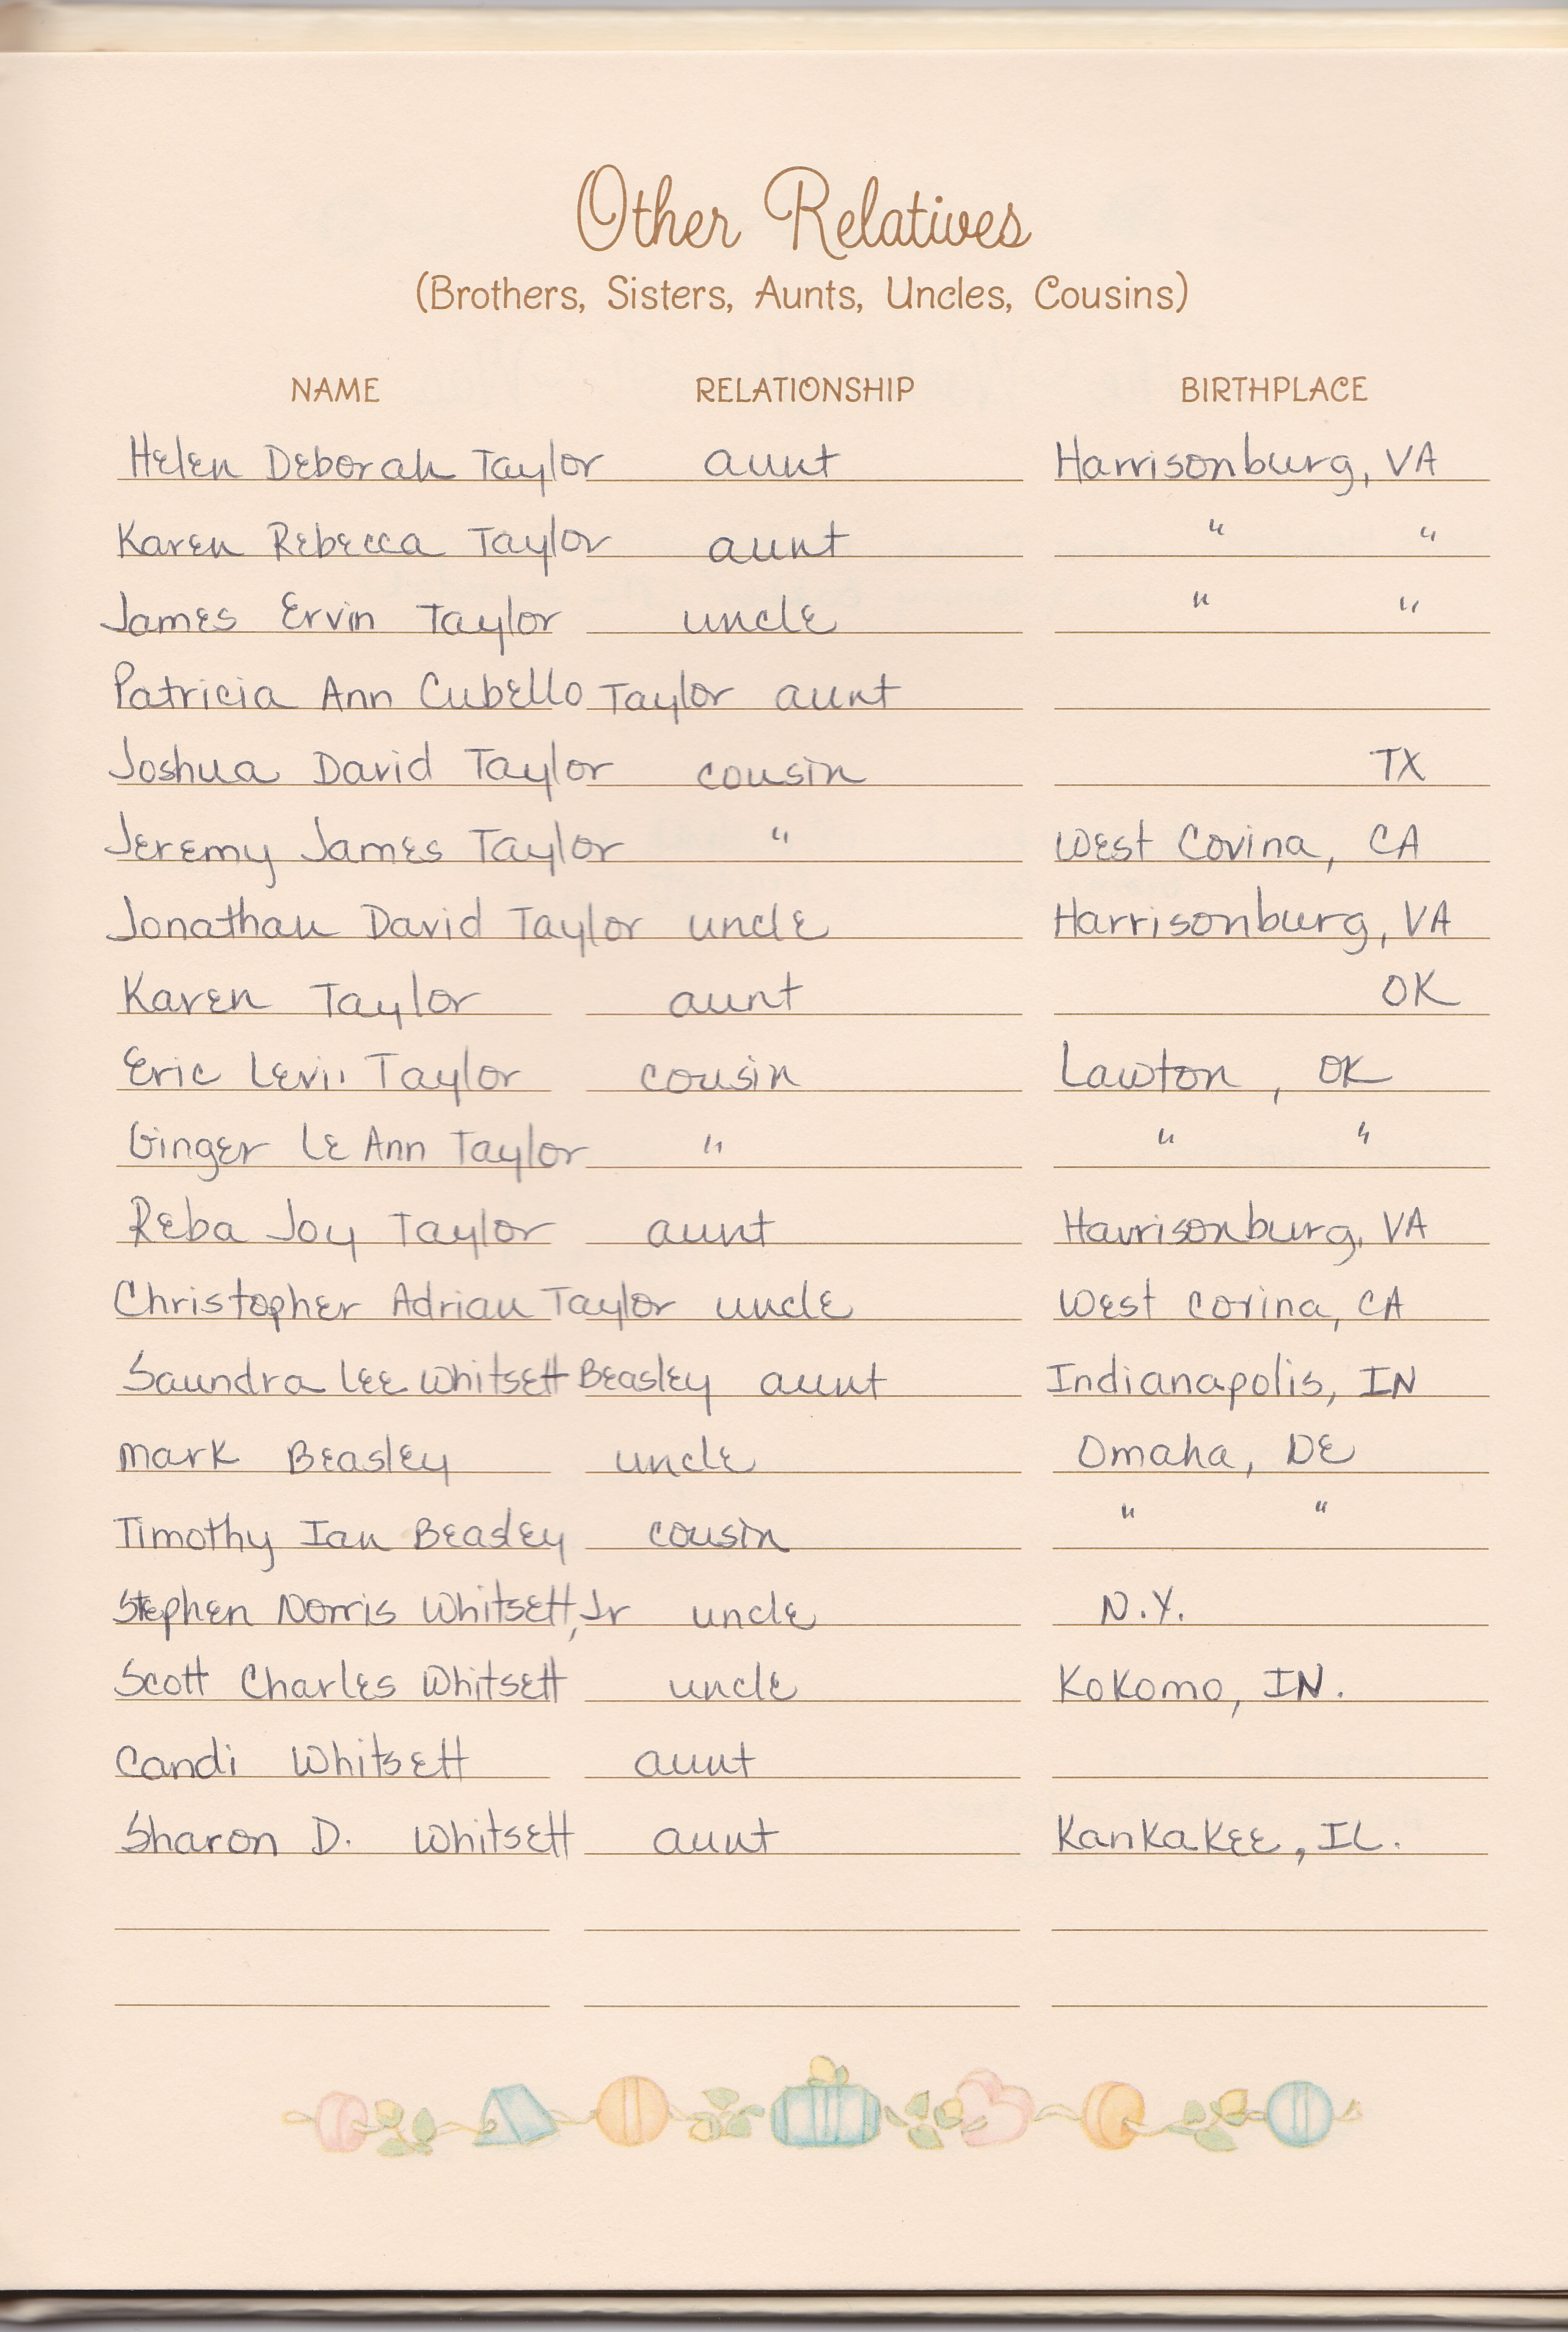 Other Relatives
(Brothers, Sisters, Aunts, Uncles, Cousins)
NAME RELATIONSHIP BIRTHPLACE
Helen Deborah Taylor aunt Harrisonburg, VA
Karen Rebecca Taylor aunt " "
James Ervin Taylor uncle " "
Patricia Ann Cubello Taylor aunt
Joshua David Taylor cousin TX
Jeremy James Taylor " West Covina, CA
Jonathan David Taylor uncle Harrisonburg, VA
Karen Taylor aunt OK
Eric Taylor cousin Lawton, OK
Ginger Le Ann Taylor " " "
Reba Joy Taylor aunt Harrisonburg, VA
Christopher Adrian Taylor uncle West Covina, CA
Saundra Lee Whitsett Beasley aunt Indianapolis, IN
Mark Beasley uncle Omaha, DE
Timothy Ian Beasley cousin " "
Stephen Norris Whitsett, Jr uncle N.Y.
Scott Charles Whitsett uncle Kokomo, IN.
Candi Whitsett aunt
Sharon D. Whitsett aunt Kankakee, IL.